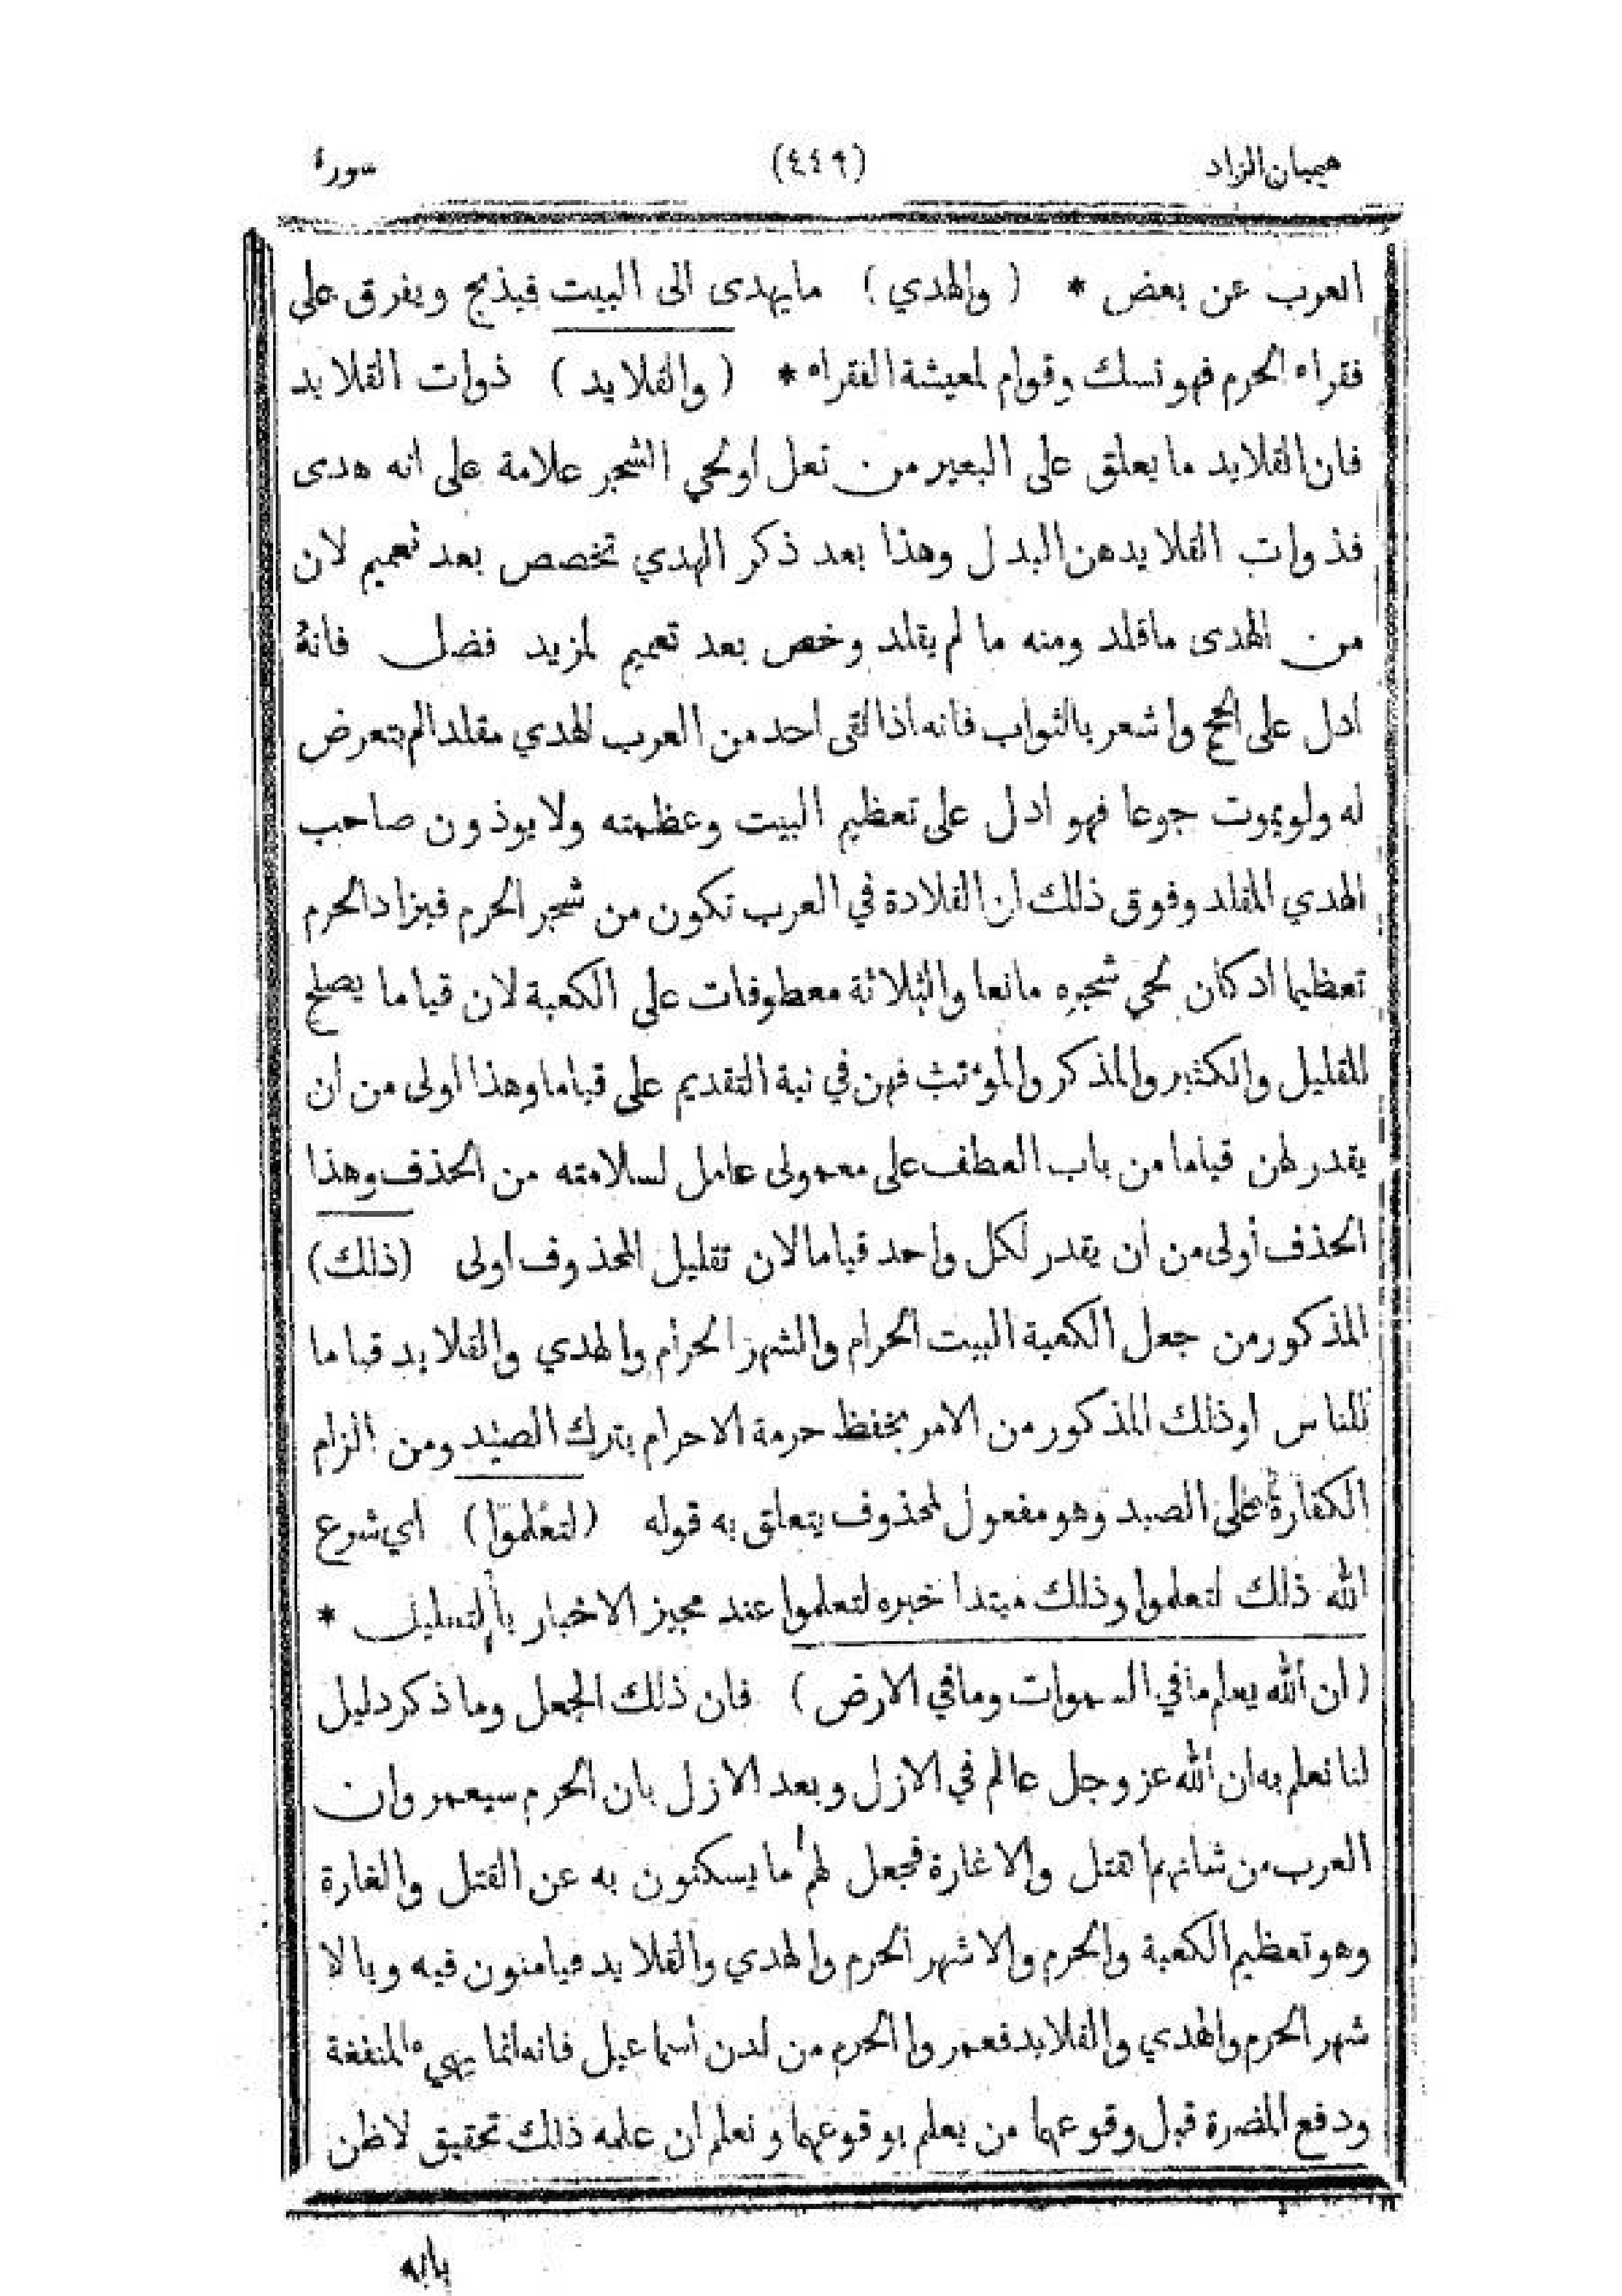 هيميان الزاد (٤٤٩) سورة
العرب عن بعض * ( والهدي ) ما يهدى الى البيت فيذبح ويفرق على
فقراء الحرم فهو نسك وقوام لمعيشة الفقراء * ( والقلايد ) ذوات القلايد
فان القلايد ما يعلق على البعير من نعل اولحي الشجر علامة على انه هدى
فذوات القلايد هن البدل وهذا بعد ذكر الهدي تخصص بعد تعميم لان
من الهدى ماقلد ومنه ما لم يقلد وخص بعد تعميم لمزيد فضل فانه
ادل على الحج واشعر بالثواب فانه اذا لقى احد من العرب الهدي مقلدا لم يتعرض
له ولو يموت جوعا فهو ادل على تعظيم البيت وعظمته ولا يوذون صاحب
الهدي المقلد وفوق ذلك ان القلادة في العرب تكون من شجر الحرم فيزاد الحرم
تعظيما اد كان لحي شجره مانعا والثلاثة معطوفات على الكعبة لان قياما يصلح
للقليل والكثير والمذكر والمؤنث فهن في نية التقديم على قياما وهذا اولى من ان
يقدر لهن قياما من باب العطف على معمولى عامل لسلامته من الحذف وهذا
الحذف أولى من ان يقدر لكل واحد قياما لان تقليل المحذوف اولى (ذلك)
المذكور من جعل الكعبة البيت الحرام والشهر الحرام والهدي والقلايد قياما
للناس اوذلك المذكور من الامر بحفظ حرمة الاحرام بترك الصيد ومن الزام
الكفارة على الصيد وهو مفعول لمحذوف يتعلق به قوله (لتعلموا) اي شرع
الله ذلك لتعلموا وذلك مبتدا خبره لتعلموا عند مجيز الاخبار بالتعليل *
(ان الله يعلم ما في السموات وما في الارض) فان ذلك الجعل وما ذكر دليل
لنا نعلم به ان الله عز وجل عالم في الازل وبعد الازل بان الحرم سيعمر وان
العرب من شانهما هتل والاغارة فجعل لهم ما يسكنون به عن القتل والغارة
وهو تعظيم الكعبة والحرم والاشهر الحرم والهدي والقلايد فيامنون فيه وبالا
شهر الحرم والهدي والقلايد فعمروا الحرم من لدن أسماعيل فانه انما يهيء المنفعة
ودفع المضرة قبل وقوعها من يعلم بوقوعها ونعلم ان علمه ذلك تحقيق لاظن
بابه